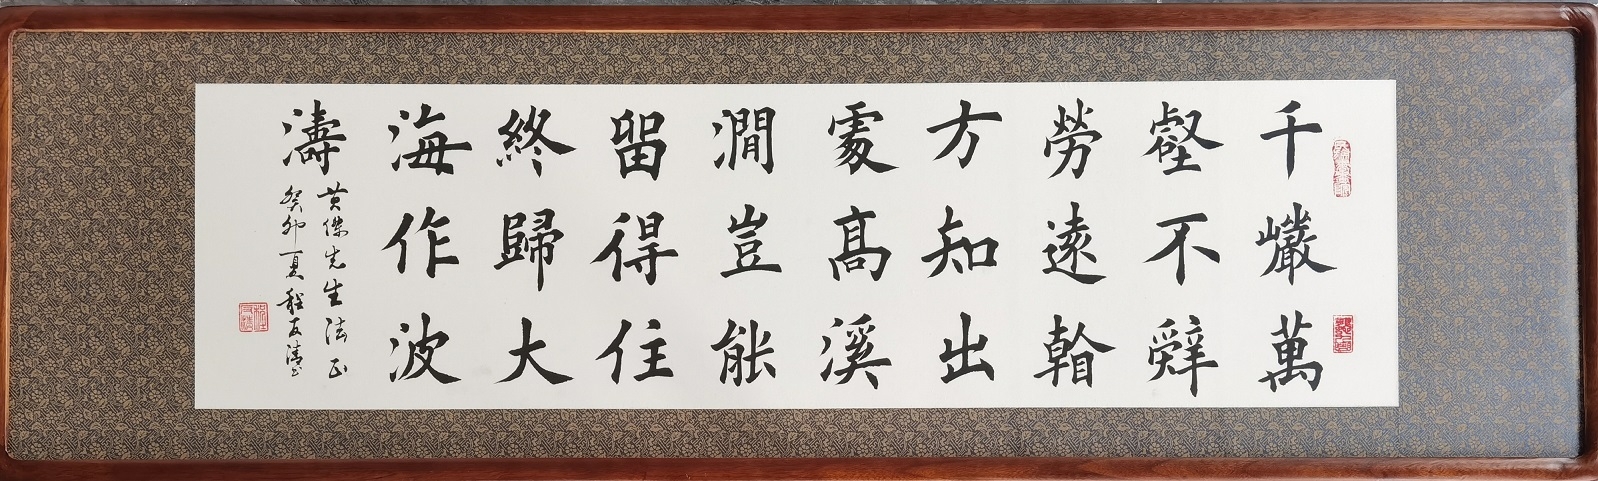 千巖萬
壑不辤
勞遠看
方知出
處髙溪
澗豈能
留得住
終歸大
海作波
濤
黄傑先生法正
癸卯夏程友清书